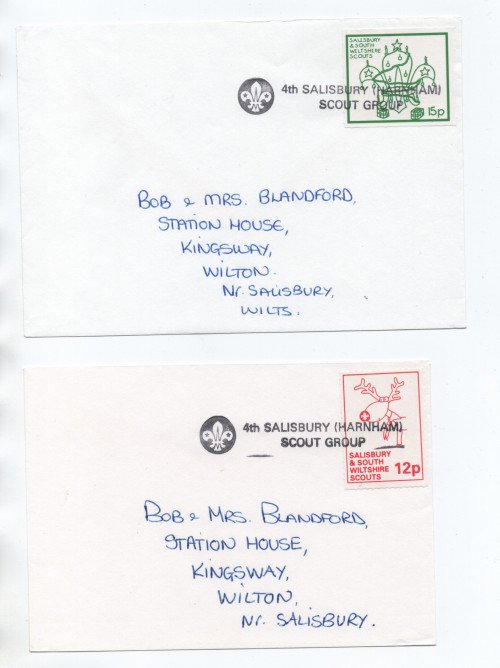 SALISBURY
& SOUTH
WILTSHIRE
SCOUTS
4th SALISBURY (HARNHAM)
SCOUT GROUP
15p
BOB & MRS. BLANDFORD,
STATION HOUSE,
KINGSWAY,
WILTON.
Nr. SALISBURY,
WILTS.
4th SALISBURY (HARNHAM)
SCOUT GROUP
SALISBURY
& SOUTH
WILTSHIRE
SCOUTS
12p
BOB & MRS. BLANDFORD,
STATION HOUSE,
KINGSWAY,
WILTON,
Nr. SALISBURY.